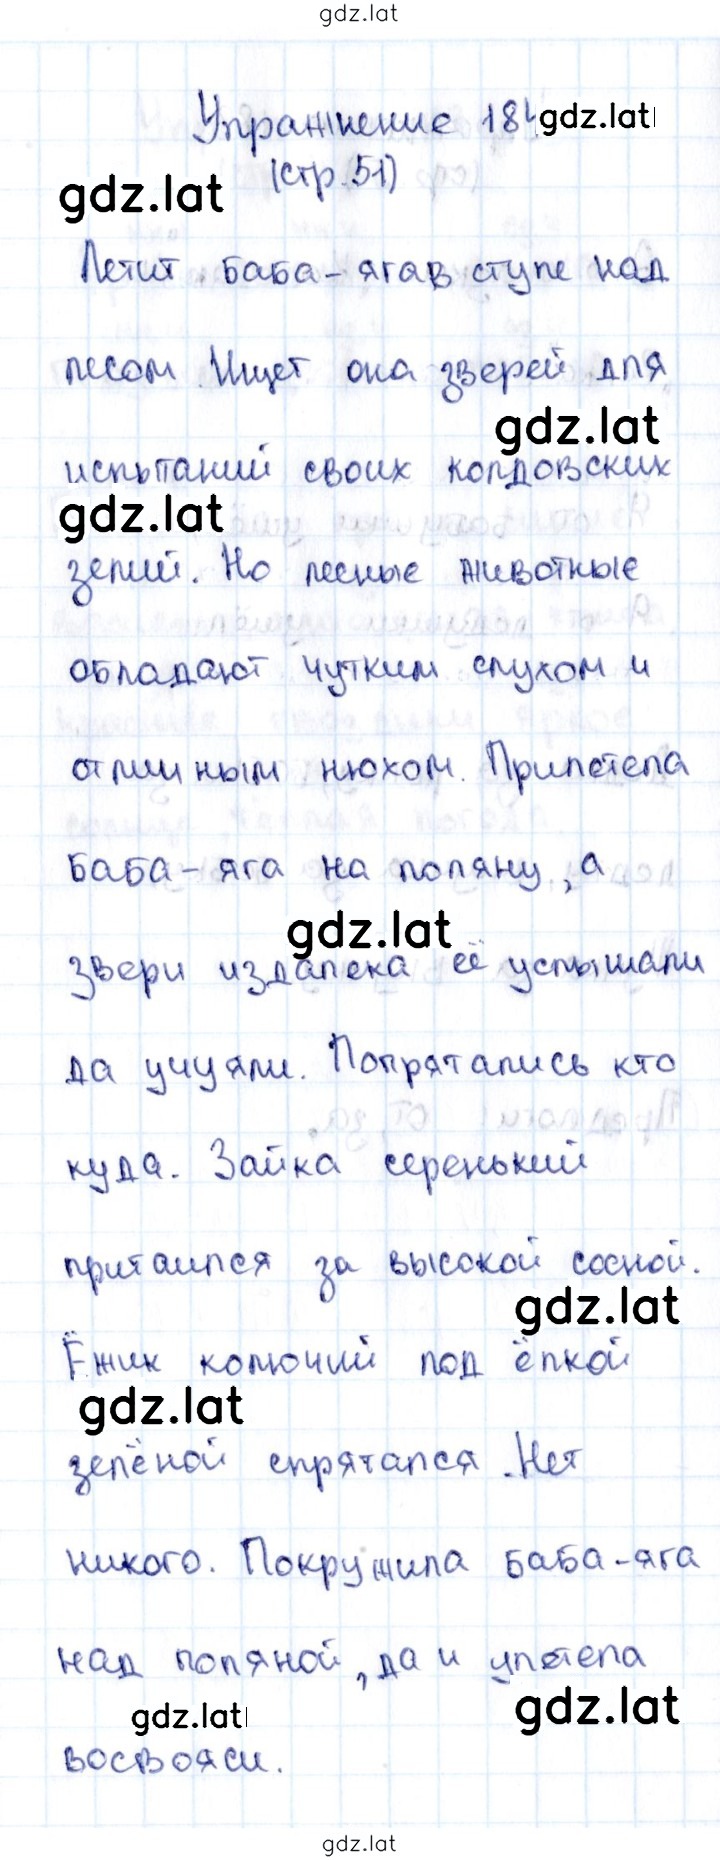 gdz.lat
Упражнение 184 gdz.lat
gdz.lat (стр. 51)
Летит баба-яга в ступе над
лесом. Ищет она зверей для
gdz.lat
испытаний своих колдовских
gdz.lat
зелий. Но лесные животные
обладают чутким слухом и
отличным нюхом. Прилетела
баба-яга на поляну, а
gdz.lat
звери издалека её услышали
да учуяли. Попрятались кто
куда. Зайка серенький
притаился за высокой сосной.
gdz.lat
Ёжик колючий под ёлкой
gdz.lat
зелёной спрятался. Нет
никого. Покружила баба-яга
над поляной, да и улетела
gdz.lat gdz.lat
восвояси.
gdz.lat